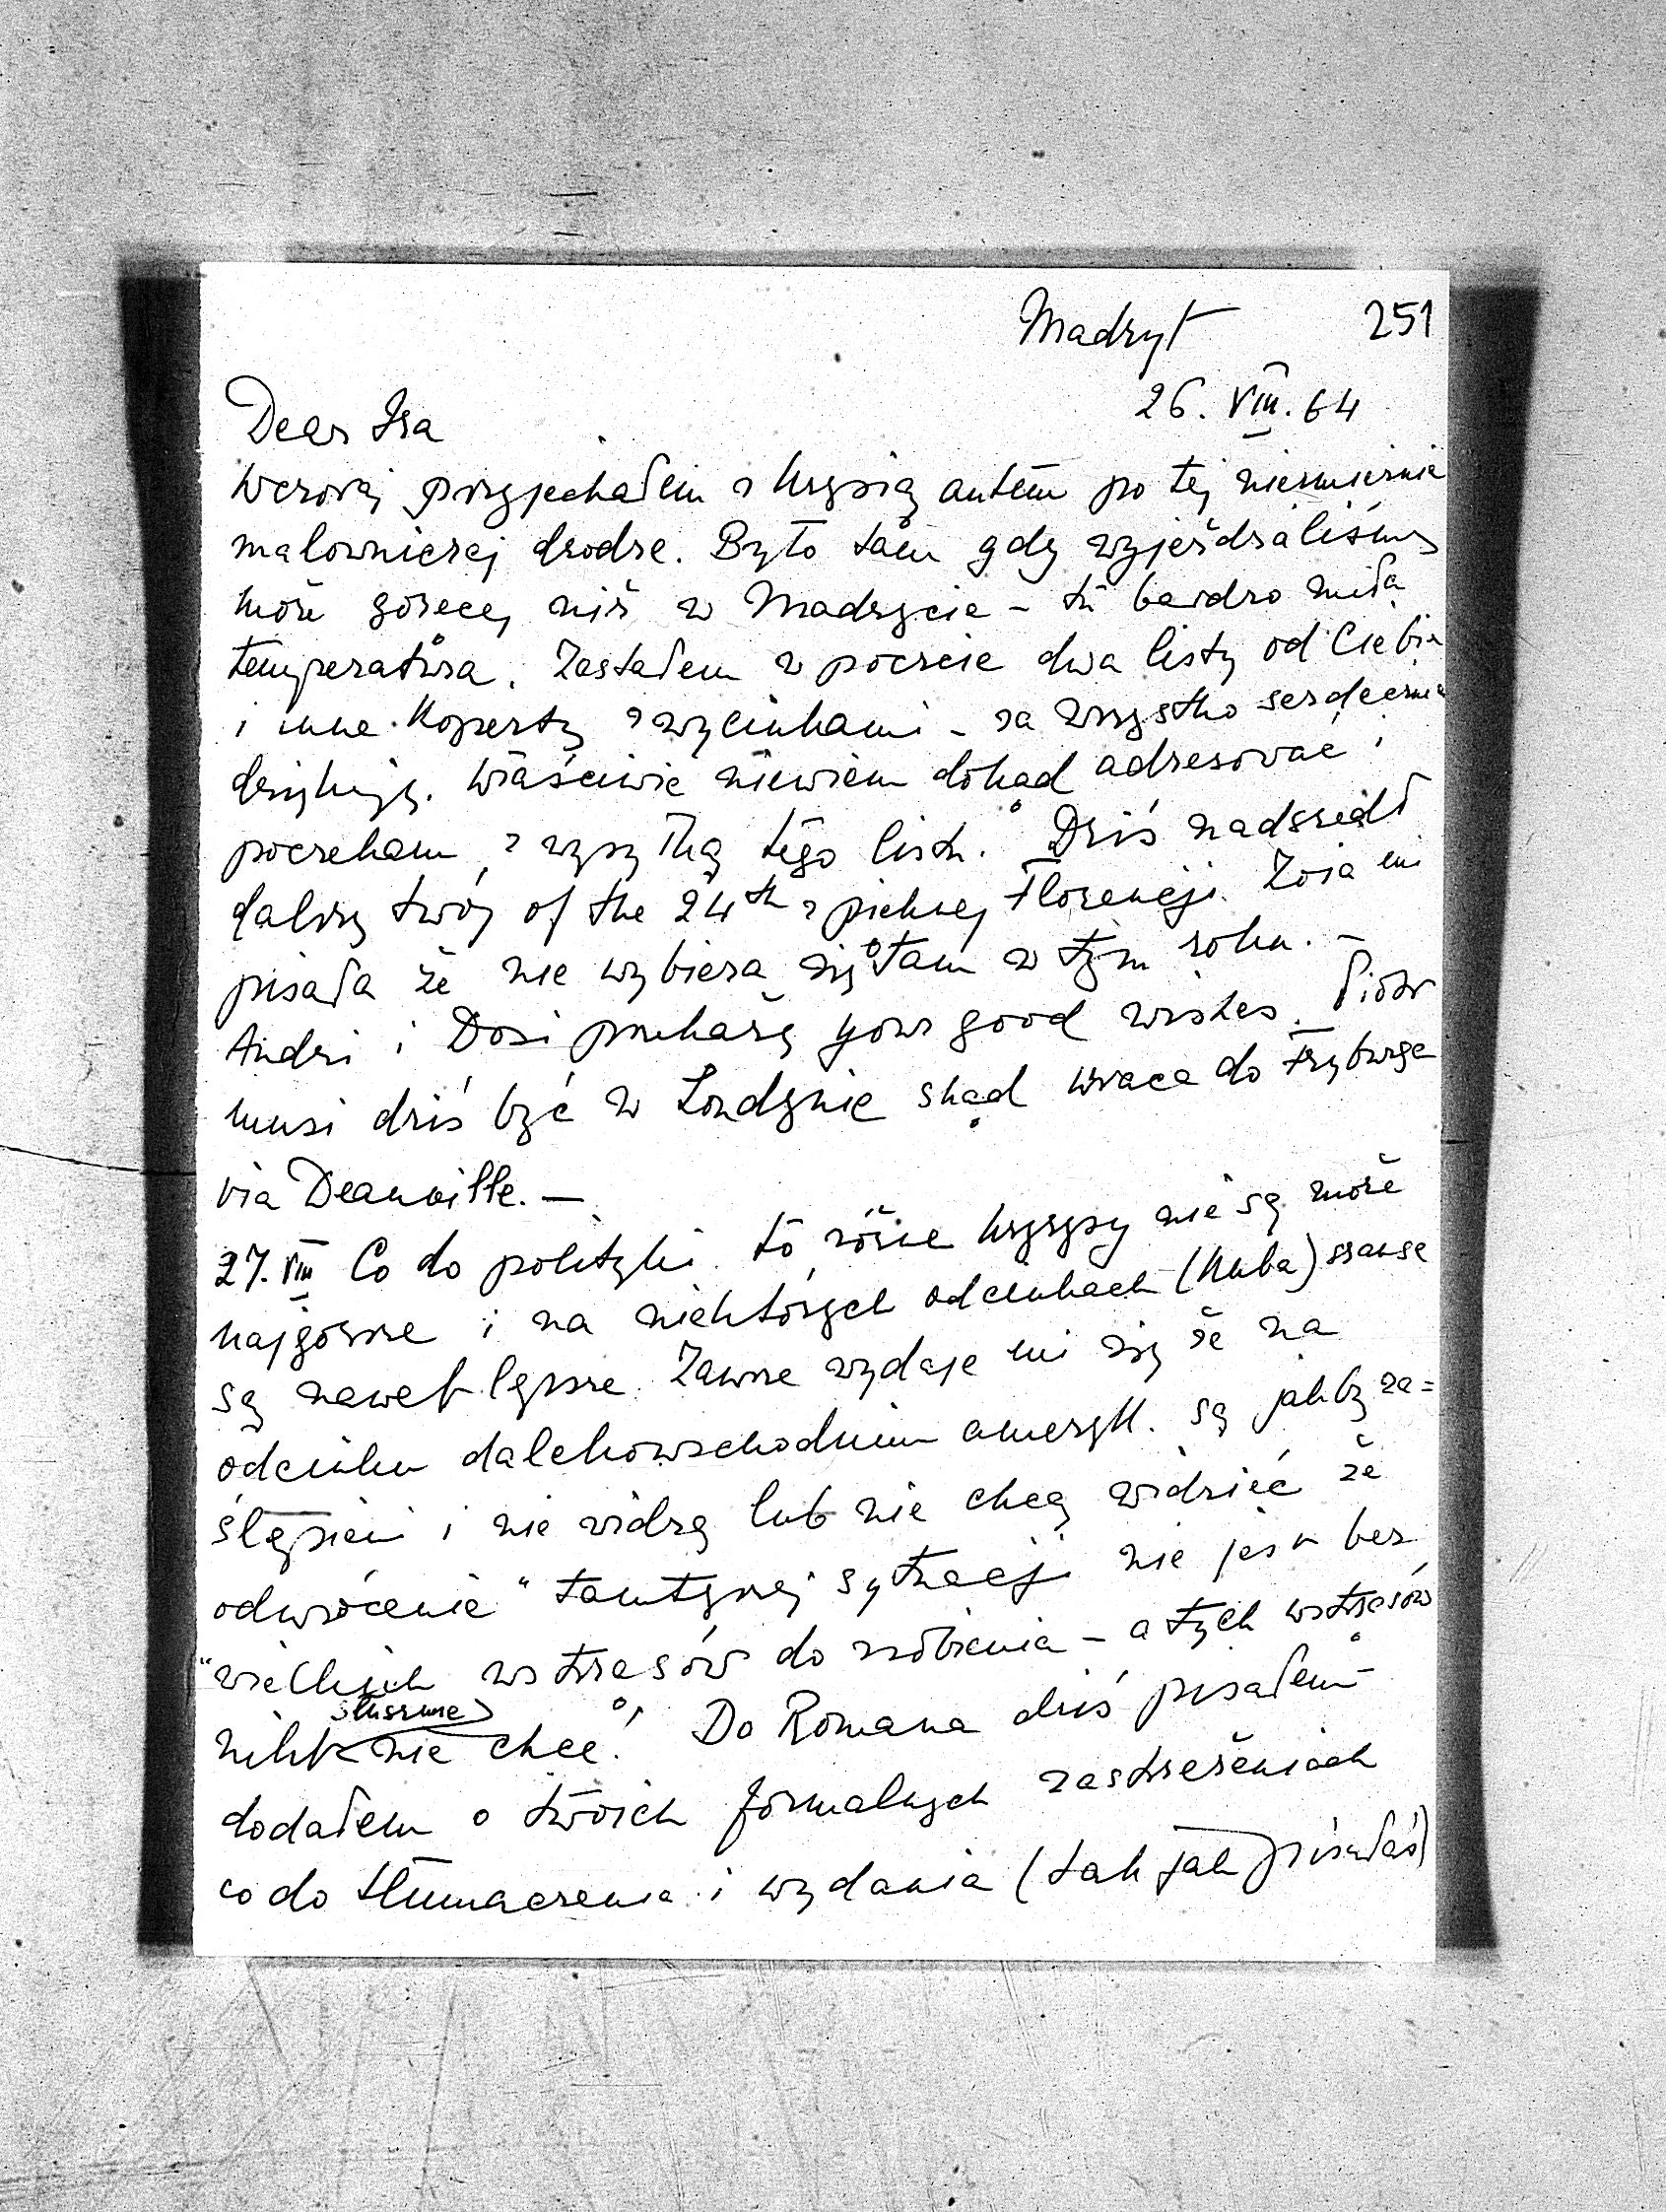 Madryt 251
26. VIII. 64
Dear Isa
Wczoraj przyjechałem z Krysią autem po tej niesmiernie
malowniczej drodze. Było tam gdy wyjeżdżaliśmy
może goręcej niż w Madrycie - tu bardzo miła
temperatura. Zastałem w poczcie dwa listy od Ciebie
i inne koperty z wycinkami - za wszystko serdecznie
dziękuję. Właściwie niewiem dokąd adresować i
poczekam z wysyłką tego listu. Dziś nadszedł
dalszy twój of the 24th z pięknej Florencji. Zoia mi
pisała że nie wybiera się tam w tym roku. -
Andzi i Dosi przekażę your good wishes. Piotr
musi dziś być w Londynie skąd wraca do Fryburga
via Deauville. —
27. VIII Co do polityki to różne kryzysy nie są może
najgorsze i na niektórych odcinkach (Kuba) szanse
są nawet lepsze. Zawsze wydaje mi się że na
odcinku dalekowschodnim ameryk. są jakby za=
ślepieni i nie widzą lub nie chcą widzieć że
odwrócenie "tamtejszej sytuacji nie jest bez
"wielkich wstrząsów do zrobienia - a tych wstrząsów
słusznie
nikt nie chce! Do Romana dziś pisałem -
dodałem o twoich formalnych zastrzeżeniach
co do tłumaczenia i wydania (tak jak pisałaś)